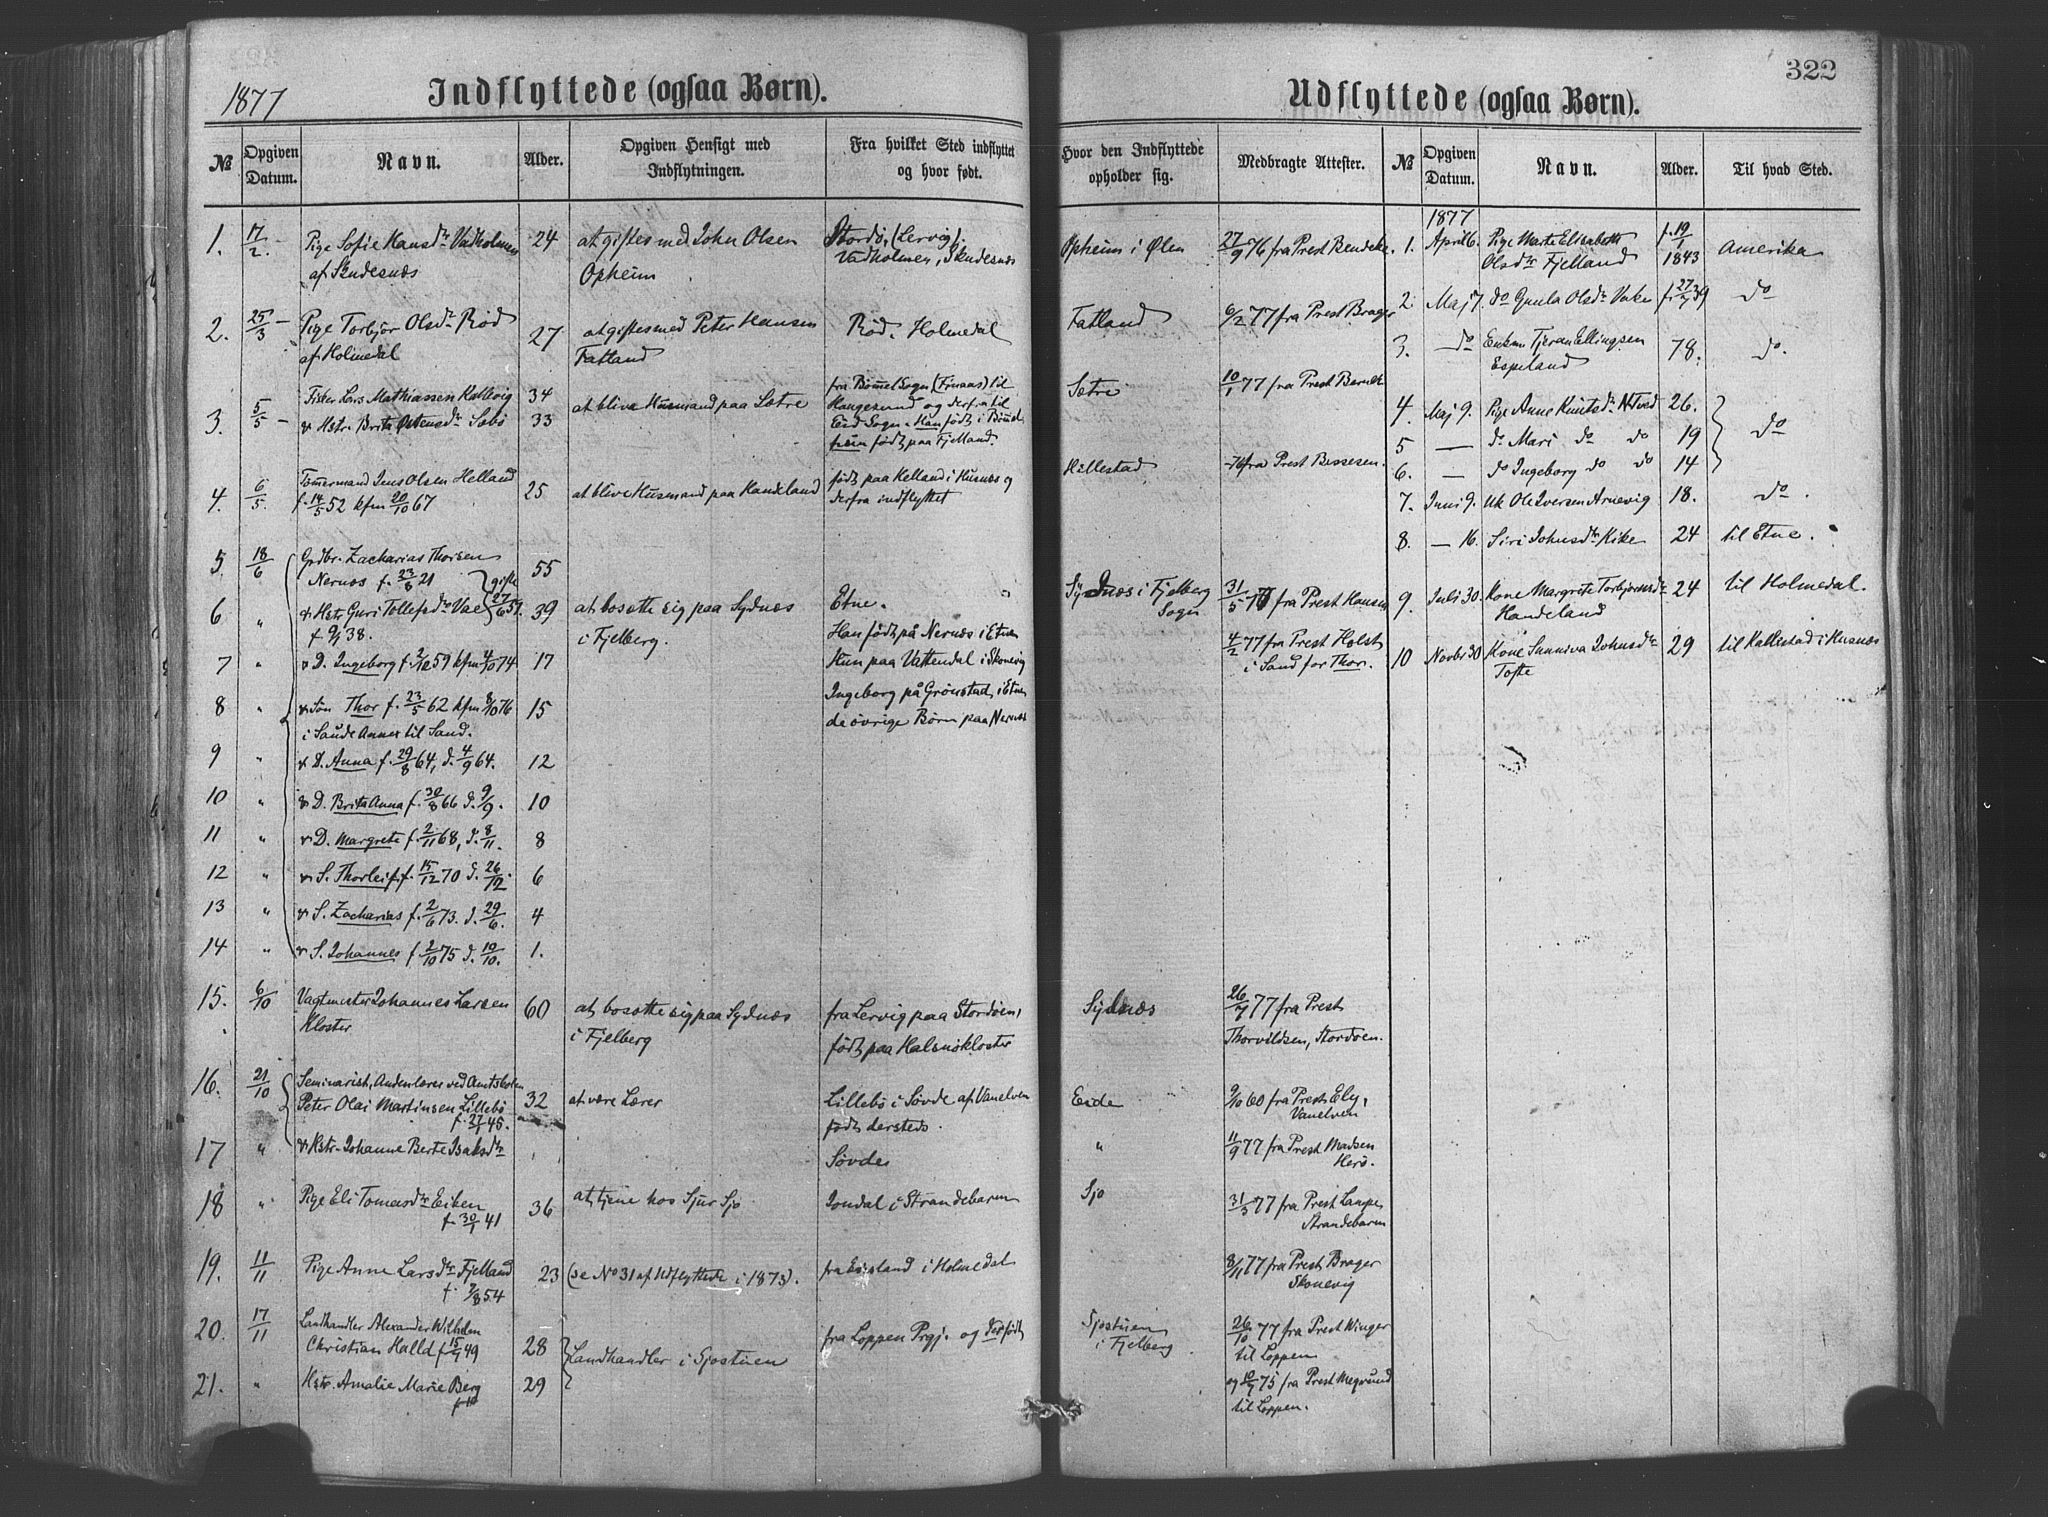 322
1877
Indflyttede (ogsaa Børn).
№ Opgiven Datum. Navn. Alder. Opgiven Hensigt med Indflytningen. Fra hvilket Sted indflyttet og hvor født.
1. 17/2. - Pige Sofie Hansdtr Vadholmen 24 at giftes med John Olsen Stordö, (Lervig),
af Skudesnæs Opheim Vadholmen, Skudesnæs
2. 25/3 - Pige Torbjør Olsdtr Rød 27 at giftes med Peter Hansen Rød. Holmedal
af Holmedal Fatland
Fisker Lars Mathiassen Kallevig 34 fra Bømmel Sogn (Finaas) til
3. 5/5 - & Hstr. Brita Ostensdtr Sæbø 33 at blive Husmand paa Sætre Haugesund og derfra til
Eid Sogn. Han født i Bømmel
hun født paa Fjelland.
4. 6/5. Tømmermand Jens Olsen Helland 25 at blive Husmand paa Handeland født paa Helland i Husnæs og
f. 14/5 52 kfm 20/10 67 derfra indflyttet
5. 18/6 Grdbr. Zacharias Thorsen 55
Nernæs f. 23/8 21 gifte
6 " & Hstr Guri Tollefsdtr Vae 27/6 57. 39 at bosætte sig paa Sydnæs Etne.
f 9/1 38. i Fjelberg. Han født på Nernæs i Etne
7 " & D. Ingeborg f. 2/12 59 kfm 4/10 74 17 Hun paa Vattendal i Skonevig
Ingeborg på Grønstad i Etne
8 " & Søn Thor f. 23/5 62 kfm 8/10 76 15 de øvrige Børn paa Nernæs
i Saude Annex til Sand.
9 " & D. Anna f. 29/8 64, d. 4/9 64. 12
10 " & D. Brita Anna f. 30/8 66 d. 9/9. 10
11 " & D. Margrete f. 2/11 68, d. 8/11 8
12 " & S. Thorleif f. 15/12 70 d. 26/12. 6
13 " & S. Zacharias f. 2/6 73. d. 29/6. 4
14 " & S. Johannes f. 2/10 75 d. 10/10. 1.
15. 6/10 Vagtmester Johannes Larsen 60 at bosætte sig paa Sydnæs fra Lervig paa Stordøen,
Kloster i Fjelberg født paa Halsnøkloster
16. 21/10 Seminarist, Andenlærer ved Amtsskolen
Peter Olai Martinsen Lillebö 32 at være Lærer Lillebö i Søvde af Vanelven
f. 27/1 45. født dersteds.
17 " & Hstr. Johanne Berte Isaksdtr Søvde
18 " Pige Eli Tomasdtr Eiken 36 at tjene hos Sjur Sjo Jondal i Strandebarm
f. 30/1 41
19. 11/11 Pige Anne Larsdtr Fjelland 23 (se No 31 af Udflyttede i 1873). fra Espeland i Holmedal
f. 9/8 54
20. 17/11 Landhandler Alexander Wilhelm
Christian Halld f 15/7 49 28 Landhandler i Sjostuen fra Loppen Prgj. og der født
21. " Hstr. Amalie Marie Berg 29
Udflyttede (ogsaa Børn).
Hvor den Indflyttede opholder sig. Medbragte Attester. № Opgiven Datum. Navn. Alder. Til hvad Sted.
Opheim i Ølen 27/9 76 fra Prest Bendeke.
Fatland 6/2 77 fra Prest Brager
Sætre 10/1 77 fra Prest Berndt
Hillestad -76 fra Prest Bessesen.
Sydnæs i Fjelberg 31/5 76 fra Prest Hansen
Sogn 4/2 77 fra Prest Holst
i Sand for Thor.
Sydnæs 26/7 77 fra Prest
Thorvildsen, Stordøen.
Eide 9/10 60 fra Prest Ely,
Vanelven
" 11/9 77 fra Prest Madsen
Herö.
Sjo 31/3 77 fra Prest Lampe,
Strandebarm
8/11 77 fra Prest Brager
Skonevig
Sjostuen 26/10 77 fra Prest Winger
i Fjelberg til Loppen
og 10/7 75 fra Prest
til Loppen.
1877
1. April 6. Pige Marte Elisabeth f. 19/1 1843 Amerika
Olsdtr Fjelland
2. Maj 7. do Gunla Olsdtr Vake f. 27/7 39 do
3. — do Enkem Tjeran Ellingsen 78. do.
Espeland
4. Maj 9. Pige Anne Knutsdtr N.Tved 26.
5 — do Mari do do 19 do
6. — do Ingeborg do do 14
7. Juni 9. Uk Ole Iversen Arnevig 18. do.
8. — 16. Siri Johnsdtr Kike 24 til Etne.
9. Juli 30. Kone Margrete Torbjørnsdtr 24 til Holmedal.
Handeland
10 Novbr 30 Kone Sunniva Johnsdtr 29 til Kallestad i Husnæs
Tofte